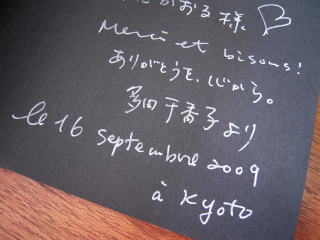 かおる様
Merci et bisous!
ありがとうを、心から。
多田千香子より
le 16 septembre 2009
à Kyoto